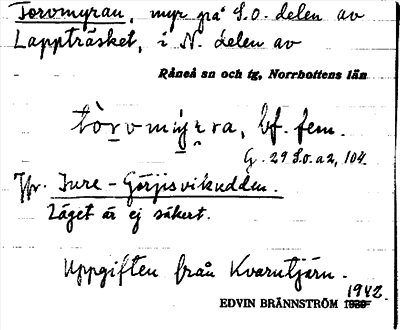 Torvmyran, myr på S.O. delen av
Lappträsket, i N. delen av
Råneå sn och tg, Norrbottens län
tòrvomýrra, bf. fem.
G. 29 S.o. a2, 104.
Jfr. Ture-Görjisvikudden.
Läget är ej säkert.
Uppgiften från Kvarntjärn.
1942.
EDVIN BRÄNNSTRÖM 1930